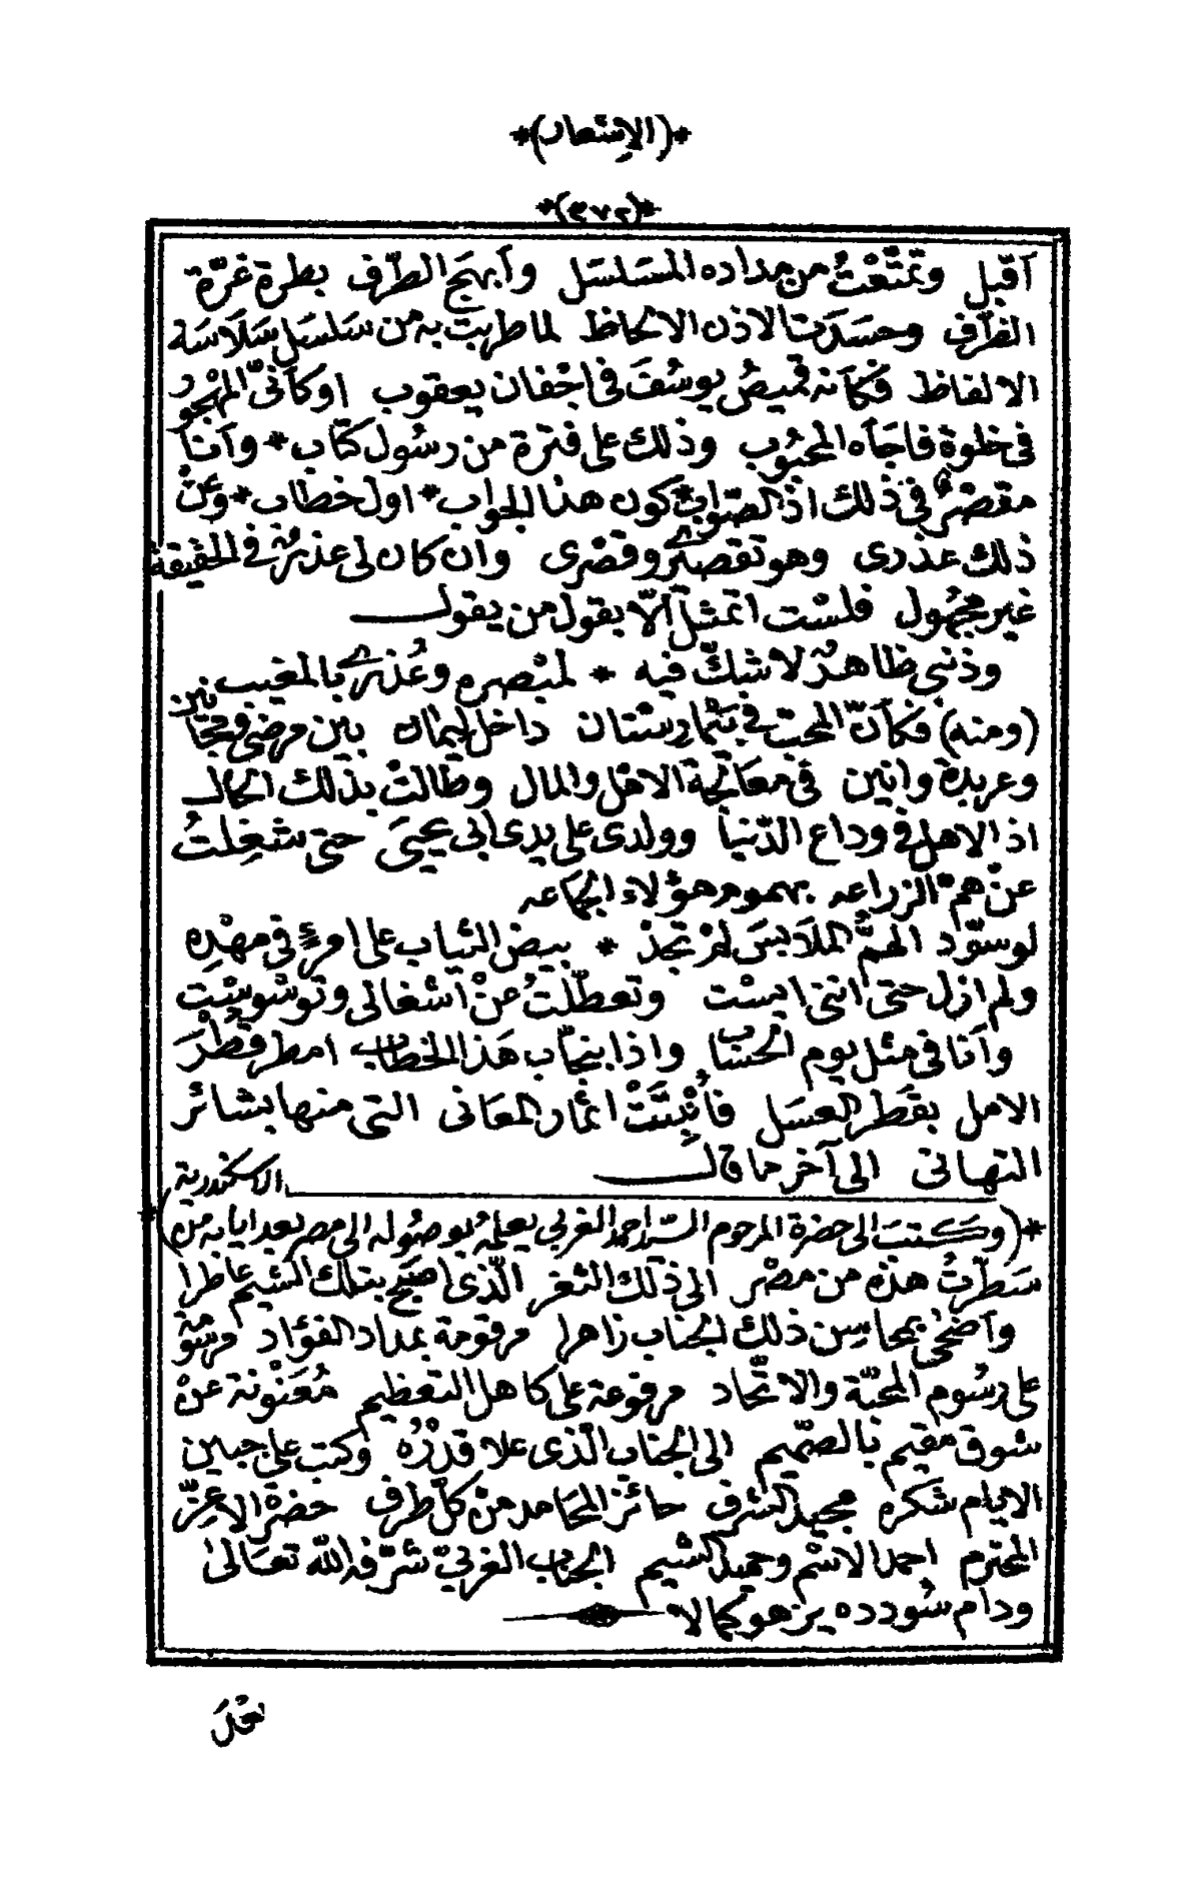 *(الاشعار)*
*(٣٧٢)*
أقبل وتمتّعتُ من مداده المسَلسَل وأبهجَ الطّرف بطرة غرّة
الظرف وحسَدَت الاذن الالحاظ لما طربت به من سَلسَل سَلَاسَة
الالفاظ فكأنه قميصُ يوسُفَ فى اجْفان يعقوب اوكأنّى المهْجور
فى خلوة فاجَأه المحبُوب وذلك على فترة من رسُول كتاب * وأنا
مقصْرٌ فى ذلك اذ الصّواب كون هذا الجواب * اول خطاب * وَعَنْ
ذلك عذرى وهو تقصيرى وقصْرى وان كان لى عذر فى الحقيقة
غير مجهُول فلسْت اتمثل الّا بقول من يقول
وذنبى ظاهرٌ لا شكّ فيه * لمبْصره وعُذرى بالمغيب
(ومنه) فكأنّ المحبّ فى بيْمارستان داخل ليمان بين مرضى ومجانين
وعربدة وانين فى معَالجة الاهْل والمال وطالتْ بذلك الحال
اذ الاهل فى وداع الدّنيا وولدى على يدى ابى يحيَى حتى شغِلتُ
عنْ همّ الزراعه بهموم هؤلاء الجماعه
لو سوّد الهمُّ الملَابسَ لم تجدْ * بيض الثياب على امرءٍ فى مهْدِه
ولم ازل حتى اننى ايسْت وتعطّلتُ عنْ أشغالى وتوشوشْت
وأنا فى مثل يوم الحسَاب واذا بنجاب هَذا الخطاب امطر قُطْرَ
الامل بقَطر العسَل فأنْبتَتْ اثمار المعَانى التى منها بشائر
التهانى الى آخر ما قال
*(وكتبتَ الى حضرة المرحوم السّيد احمد الغربى يعلمهُ بوصُوله الى مصر بعد ايابه من الاسكندرية)*
سَطّرتُ هذه من مصْر الى ذلك الثغر الّذى اصبَح بتلك الشيم عاطرا
وأضحى بمحاسِن ذلك الجناب زاهرا مرقومة بمداد الفؤاد مرسُومة
على رسُوم المحبّة والاتّحاد مرفوعة على كاهل التعظيم مُعَنْوَنة عنْ
شوق مقيم بالصّميم الى الجناب الّذى علا قدْرُه وكتب على جبين
الايام شكره مجيد الشرف حائز المحَامد منْ كلّ طرف حضرَة الاعزّ
المحترم احمد الاسْم وحميد الشيم الجناب الغربىّ شرّفه الله تعَالىٰ
ودام سُودده يزهو كمالا